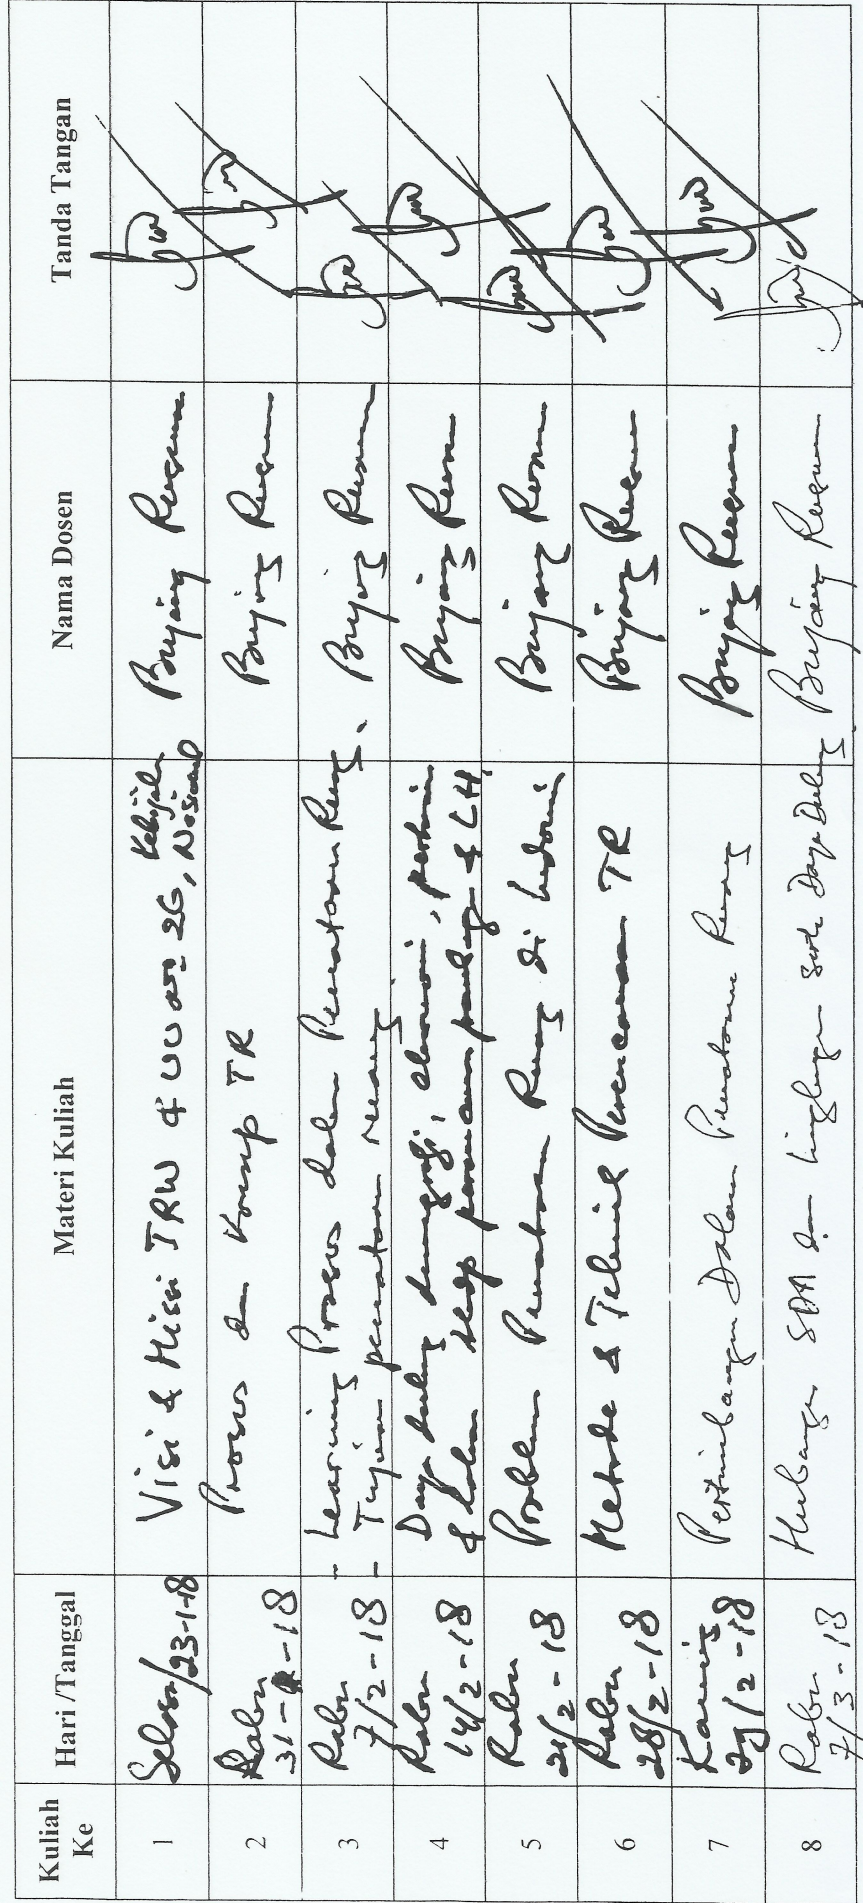 Kuliah Ke Hari /Tanggal Materi Kuliah Nama Dosen Tanda Tangan
1 Selasa/23-1-18 Visi & Misi TRW & UU 26, Kebijakan Nasional Bujang Rusman
2 Rabu 31-1-18 Proses dan Konsep TR Bujang Rusman
3 Rabu 7/2-18 - Learning Proses dalam Penataan Ruang.
- Tujuan penataan ruang Bujang Rusman
4 Rabu 14/2-18 Daya dukung demografi, ekonomi,
& LH. Bujang Rusman
5 Rabu 21/2-18 Problem Penataan Ruang di Indonesia Bujang Rusman
6 Rabu 28/2-18 Metode & Teknik Perencanaan TR Bujang Rusman
7 Kamis /2-18 Pertimbangan Dalam Penataan Ruang Bujang Rusman
8 Rabu 7/3-18 Hubungan SDA dan Lingkungan serta Daya Dukung Bujang Rusman